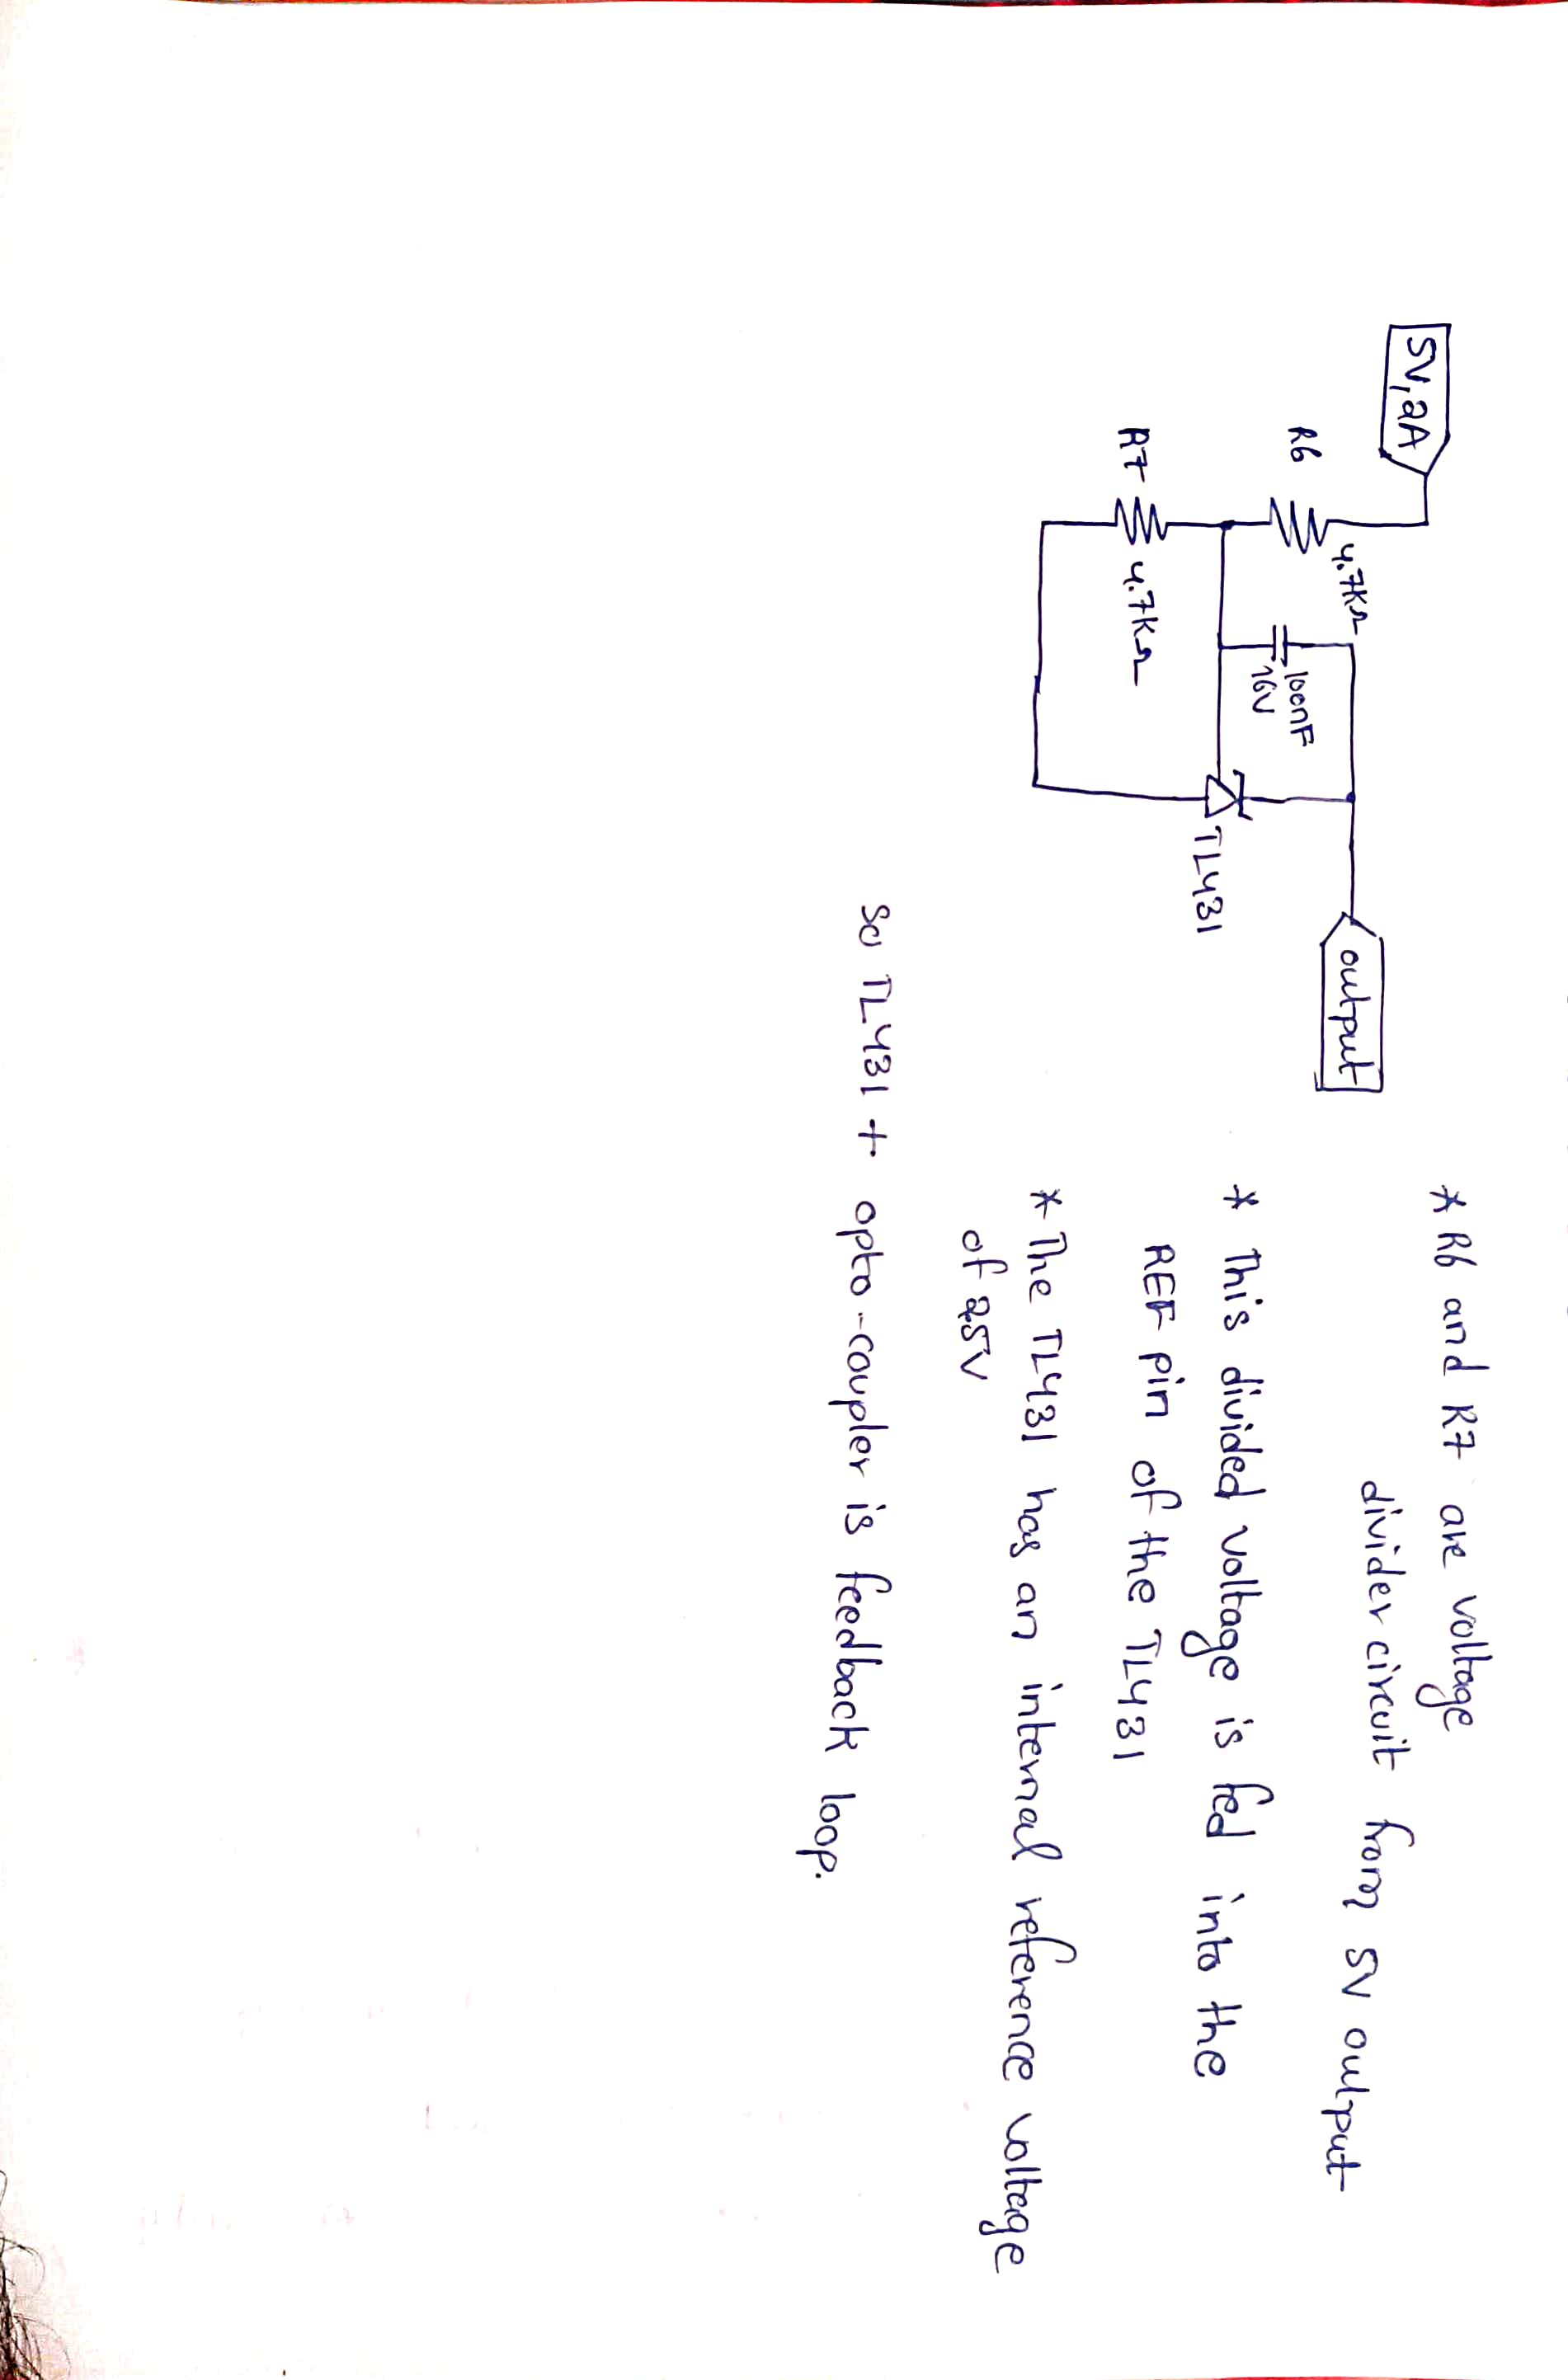 5V, 2A
R6
4.7KΩ
100nF
16V
R7
4.7KΩ
TL431
output
* R6 and R7 are voltage
divider circuit from 5V output
* This divided voltage is fed into the
REF pin of the TL431
* The TL431 has an internal reference voltage
of 25V
so TL431 + opto-coupler is feedback loop.